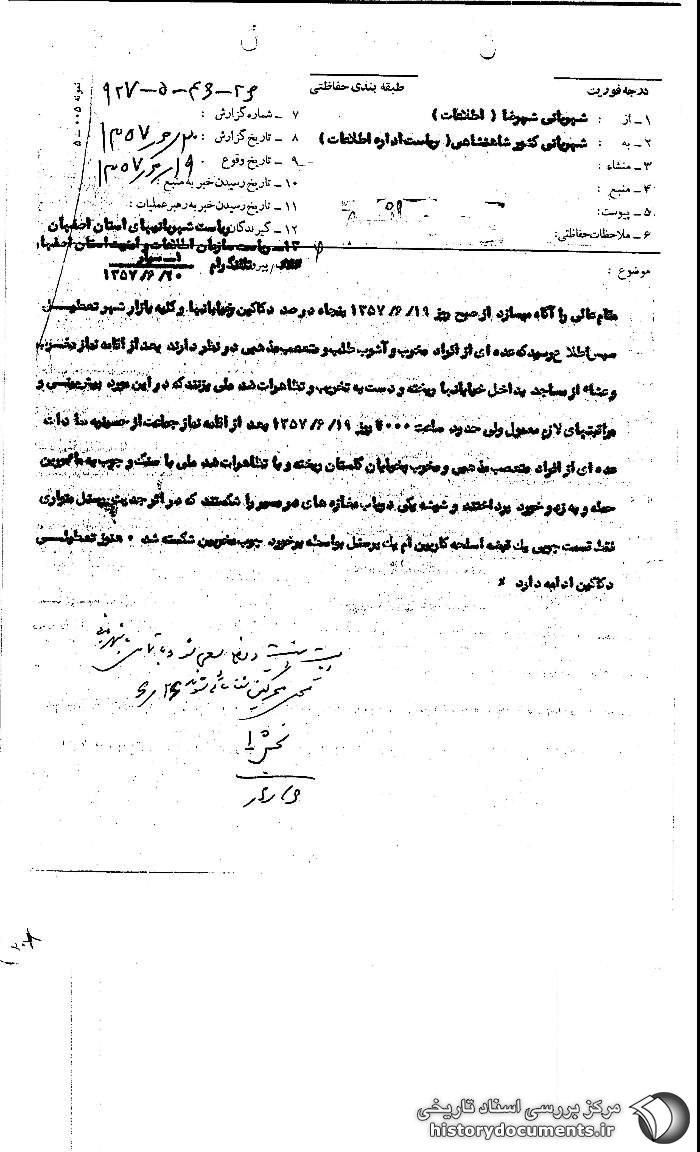 نمونه ۰۰۵ – ۵
درجه فوریت
طبقه بندی حفاظتی
۱ – از : شهربانی شهرضا ( اطلاعات )
۲ – به : شهربانی کشور شاهنشاهی ( ریاست اداره اطلاعات )
۳ – منشاء :
۴ – منبع :
۵ – پیوست:
۶ – ملاحظات حفاظتی:
۷ – شماره گزارش : ۲۶–۴۳–۵–۹۲۷
۸ – تاریخ گزارش : ۲۰/۶/۱۳۵۷
۹ – تاریخ وقوع : ۱۹/۶/۱۳۵۷
۱۰ – تاریخ رسیدن خبر به منبع :
۱۱ – تاریخ رسیدن خبر به رهبر عملیات :
۱۲ – گیرندگان ریاست شهربانیهای استان اصفهان
۱۳– ریاست سازمان اطلاعات و امنیت استان اصفهان
پیرو تلگرام
۱۳۵۷/۶/۲۰
موضوع :
مقام عالی را آگاه میسازد از صبح روز ۱۳۵۷/۶/۱۹ پنجاه درصد دکاکین خیابانها و کلیه بازار شهر تعطیل
سپس اطلاع رسید که عده ای از افراد مخرب و آشوب طلب و متعصب مذهبی در نظر دارند بعد از اقامه نماز مغرب
و عشاء از مساجد بداخل خیابانها ریخته و دست به تخریب و تظاهرات ضد ملی بزنند که در این مورد پیش بینی و
مراقبتهای لازم معمول ولی حدود ساعت روز ۱۳۵۷/۶/۱۹ بعد از اقامه نماز جماعت از حسینیه سادات
عده ای از افراد متعصب مذهبی و مخرب بخیابان گلستان ریخته و با تظاهرات ضد ملی با سنگ و چوب به مامورین
حمله و به زد و خورد پرداختند و شیشه یکی دو باب مغازه های در مسیر را شکستند که در اثر جدیت پرسنل متواری
فقط قسمت چوبی یک قبضه اسلحه کاربین ام یک پرسنل بواسطه برخورد چوب مخربین شکسته شد ۰ هنوز تعطیلی
دکاکین ادامه دارد
بخش ۱
مرکز بررسی اسناد تاریخی
historydocuments.ir